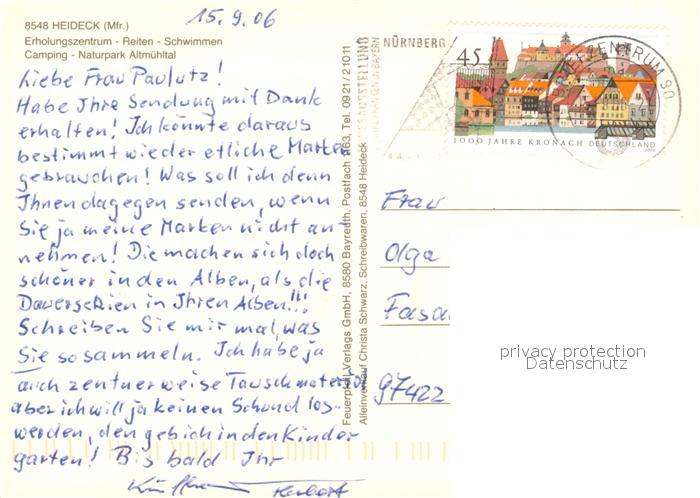 15.9.06
8548 HEIDECK (Mfr.)
Erholungszentrum - Reiten - Schwimmen
Camping - Naturpark Altmühltal
Liebe Frau Paulutz!
Habe Ihre Sendung mit Dank
erhalten! Ich könnte daraus
bestimmt wieder etliche Marken
gebrauchen! Was soll ich denn
Ihnen dagegen senden, wenn
Sie ja meine Marken nicht an-
nehmen! Die machen sich doch
schöner in den Alben, als die
Dauerserien in Ihren Alben!!!
Schreiben Sie mir mal, was
Sie so sammeln. Ich habe ja
auch zentnerweise Tauschmaterial
aber ich will ja keinen Schund los-
werden, den geb ich in den Kinder
garten! Bis bald Ihr
Herbert
Feuerpfeil Verlags GmbH, 8580 Bayreuth, Postfach 1163, Tel. 0921/21011
Alleinverkauf Christa Schwarz, Schreibwaren, 8548 Heideck
NÜRNBERG
IN BAYERN
45
1000 JAHRE KRONACH DEUTSCHLAND
ZENTRUM 90
Frau
Olga
Fasa
97422
privacy protection
Datenschutz